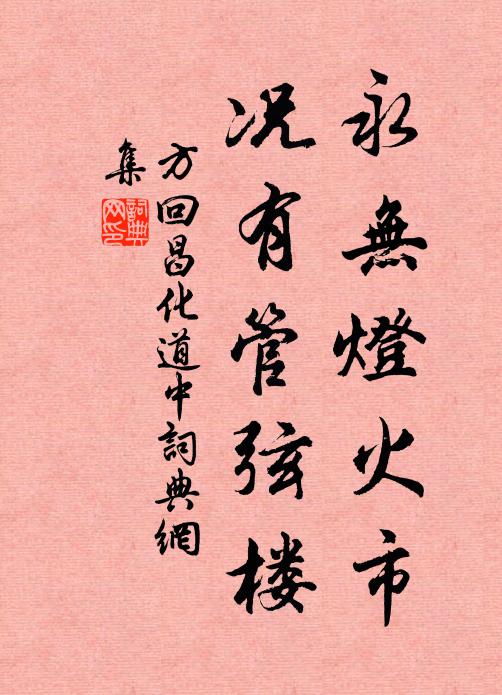 永無燈火市
况有管弦楼
方回昌化道中詞典網
集
詞典
网印